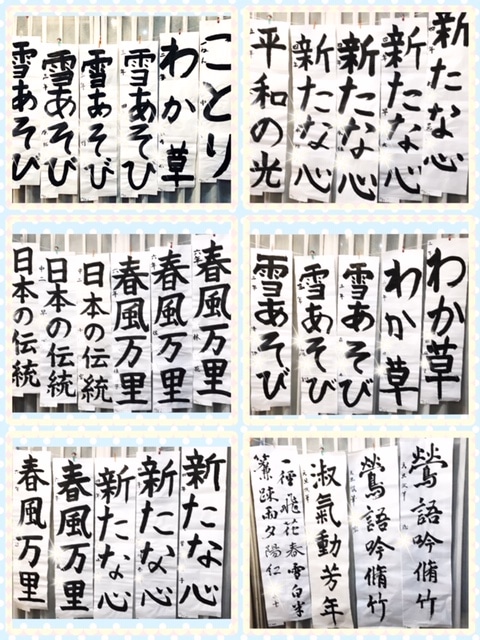 ことり
わか草
雪あそび
雪あそび
雪あそび
雪あそび
新たな心
新たな心
新たな心
新たな心
平和の光
春風万里
春風万里
春風万里
日本の伝統
日本の伝統
日本の伝統
わか草
わか草
雪あそび
雪あそび
雪あそび
新たな心
新たな心
新たな心
春風万里
春風万里
鶯語吟脩竹
鶯語吟脩竹
淑氣動芳年
一徑飛花春雪白半
簾疎雨夕陽紅